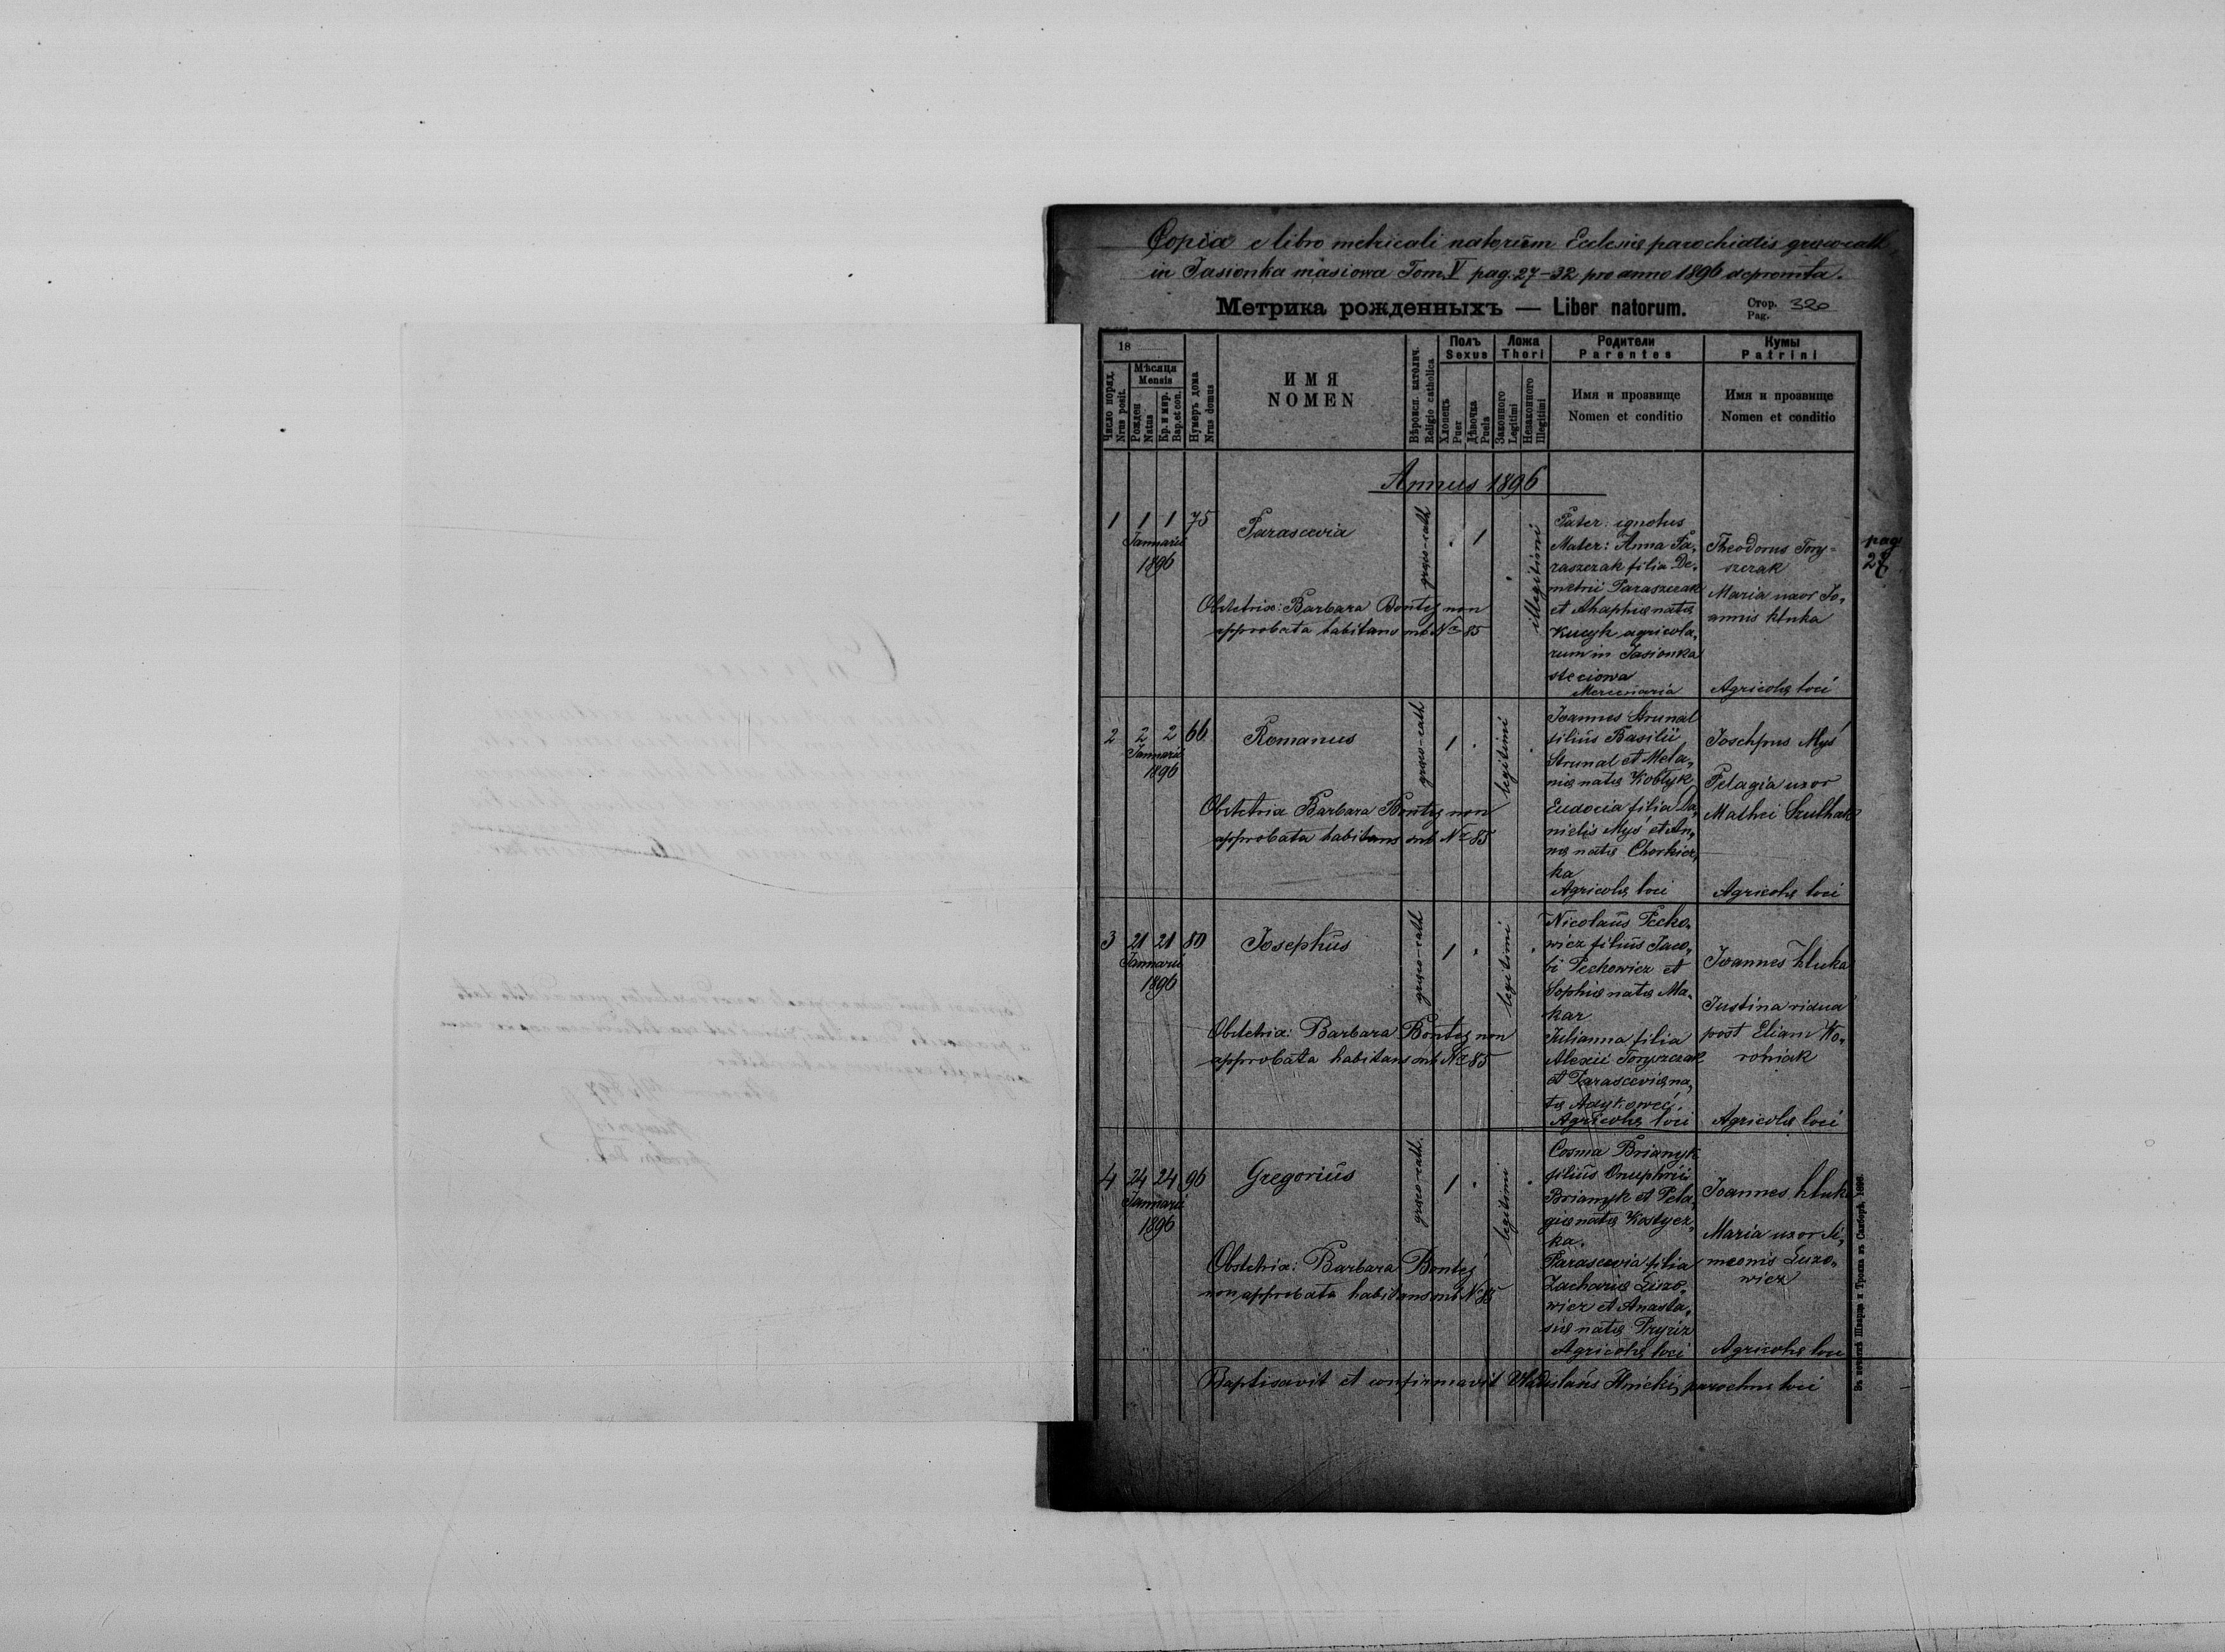 Copia e libro metricali natorum Ecclesiæ parochialis græco-cath.
in Jasionka masiowa Tom. V pag. 27-32 pro anno 1896 depromta.
Метрика рожденныхъ — Liber natorum.
Стор. Pag. 320
18
Число поряд.
Nrus posit.
Мѣсяця
Mensis
Рожден
Natus
Кр. и мир.
Bap. et con.
Нумеръ дома
Nrus domus
ИМЯ
NOMEN
Вѣроисп. католич.
Religio catholica
Полъ
Sexus
Хлопецъ
Puer
Дѣвочка
Puela
Ложа
Thori
Законного
Legitimi
Незаконного
Illegitimi
Родители
Parentes
Имя и прозвище
Nomen et conditio
Кумы
Patrini
Имя и прозвище
Nomen et conditio
Annus 1896
1 1 1 75
Januarii
1896
Parascevia
græco-cath
1
illegitimi
Obstetrix: Barbara Bontej non
approbata habitans sub Nr 85
Pater: ignotus
Mater: Anna Pa-
raszczak filia De-
metrii Paraszczak
et Ahaphiæ natæ
Kucyk agricola-
rum in Jasionka
steciowa
Mercenaria
Theodorus Tory-
szczak
Maria uxor Jo-
annis Kluka
Agricolæ loci
pag
27
2 2 2 66
Januarii
1896
Romanus
græco-cath
1
legitimi
Obstetrix Barbara Bontej non
approbata habitans sub Nr 85
Joannes Strunal
filius Basilii
Strunal et Mela-
niæ natæ Kobtyk
Eudocia filia Da-
nielis Myś et An-
næ natæ Chorkiez-
ka
Agricolæ loci
Josephus Myś
Pelagia uxor
Mathei Szulhak
Agricolæ loci
3 21 21 80
Januarii
1896
Josephus
græco-cath
1
legitimi
Obstetrix: Barbara Bontej non
approbata habitans sub Nr 85
Nicolaus Pecko-
wicz filius Jaco-
bi Peckowicz et
Sophiæ natæ Ma-
kar
Julianna filia
Alexii Toryszczak
et Parasceviæ na-
tæ
Agricolæ loci
Joannes Kluka
Justina vidua
post Eliam Wo-
roniak
Agricolæ loci
4 24 24 96
Januarii
1896
Gregorius
græco-cath.
1
legitimi
Obstetrix: Barbara Bontej
non approbata habitans sub Nr 85
Cosma Brianyk
filius Onuphrii
Brianyk et Pela-
giæ natæ Kostycz-
ka.
Parascevia filia
Zachariæ Luzo-
wicz et Anasta-
siæ natæ Pryriz
Agricolæ loci
Joannes Kluka
Maria uxor Si-
meonis Luzo-
wicz
Agricolæ loci
Baptisavit et confirmavit Uladislaus Ilnicki, parochus loci
Въ печатнѣ Шварца и Трояна въ Самборѣ,